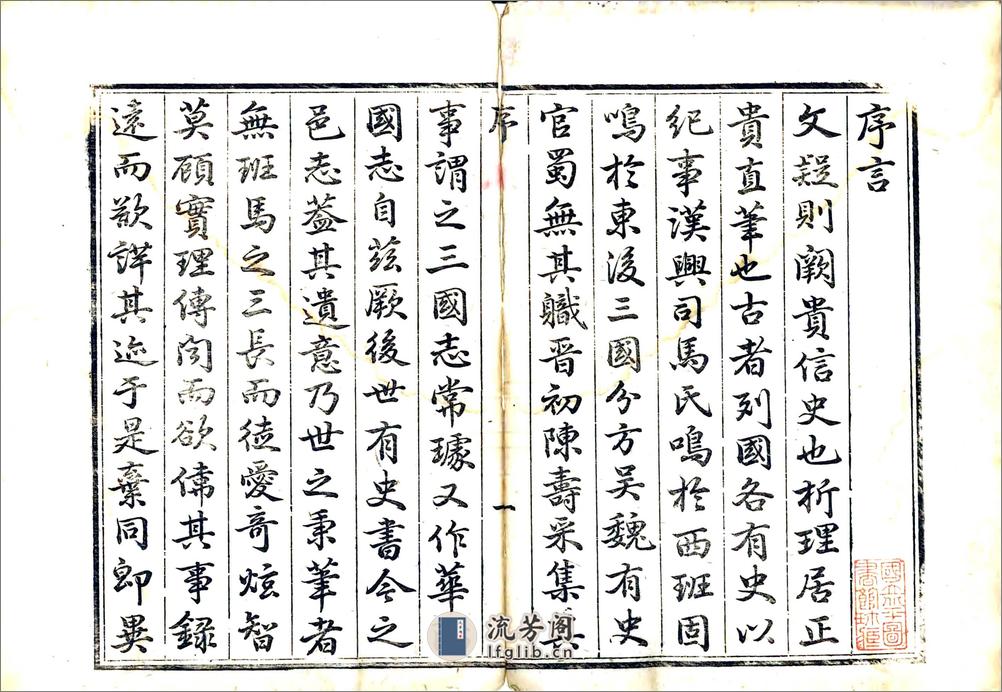 序言
文疑則闕貴信史也析理居正
貴直筆也古者列國各有史以
紀事漢興司馬氏鳴於西班固
鳴於東後三國分方吴魏有史
官蜀無其職晋初陳壽采集其
序
一
事謂之三國志常璩又作華
國志自兹厥後世有史書今之
邑志葢其遺意乃世之秉筆者
無班馬之三長而徒愛奇炫智
莫顧實理傳聞而欲偹其事録
遠而欲詳其迹于是棄同卽異
流芳阁
lfglib.cn